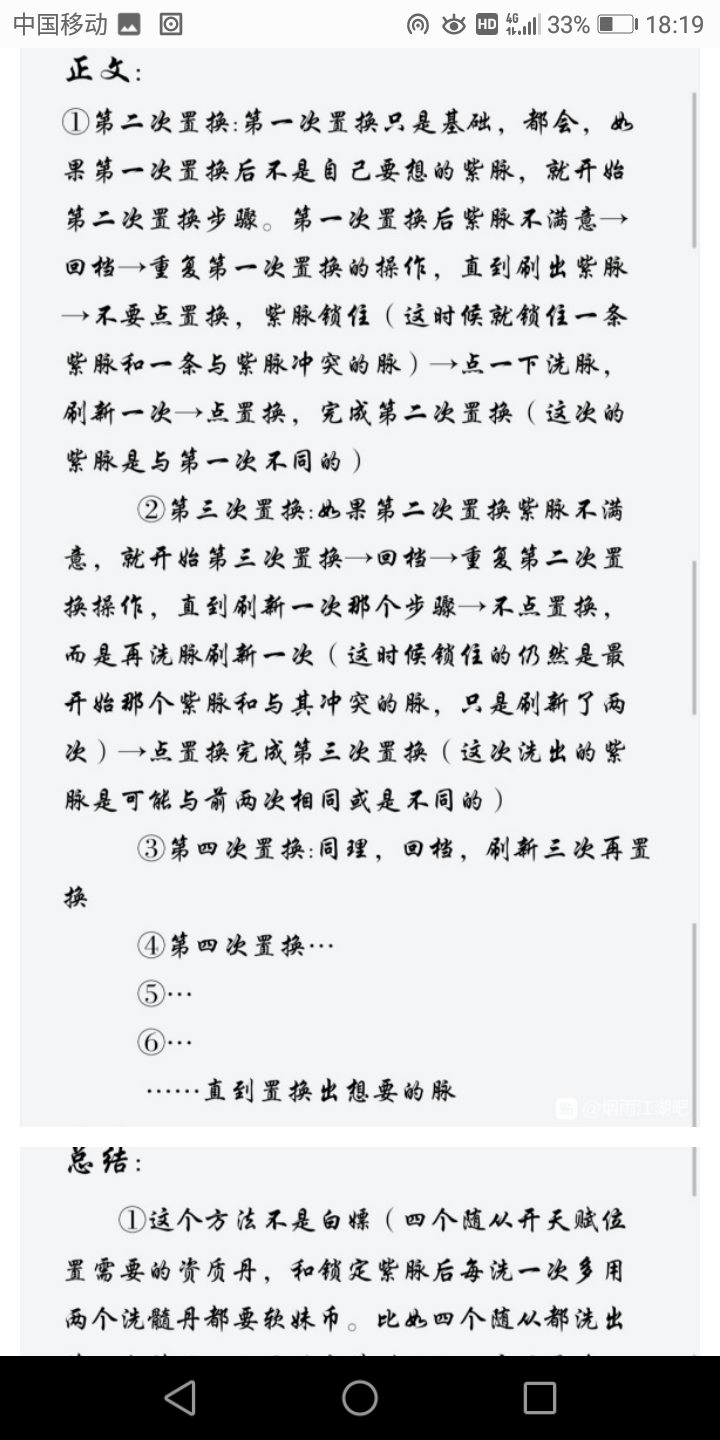 中国移动 HD 4G 33% 18:19
正文:
①第二次置换:第一次置换只是基础，都会，如
果第一次置换后不是自己要想的紫脉，就开始
第二次置换步骤。第一次置换后紫脉不满意→
回档→重复第一次置换的操作，直到刷出紫脉
→不要点置换，紫脉锁住（这时候就锁住一条
紫脉和一条与紫脉冲突的脉）→点一下洗脉，
刷新一次→点置换，完成第二次置换（这次的
紫脉是与第一次不同的）
②第三次置换:如果第二次置换紫脉不满
意，就开始第三次置换→回档→重复第二次置
换操作，直到刷新一次那个步骤→不点置换，
而是再洗脉刷新一次（这时候锁住的仍然是最
开始那个紫脉和与其冲突的脉，只是刷新了两
次）→点置换完成第三次置换（这次洗出的紫
脉是可能与前两次相同或是不同的）
③第四次置换:同理，回档，刷新三次再置
换
④第四次置换…
⑤…
⑥…
……直到置换出想要的脉
@烟雨江湖吧
总结:
①这个方法不是白嫖（四个随从开天赋位
置需要的资质丹，和锁定紫脉后每洗一次多用
两个洗髓丹都要软妹币。比如四个随从都洗出